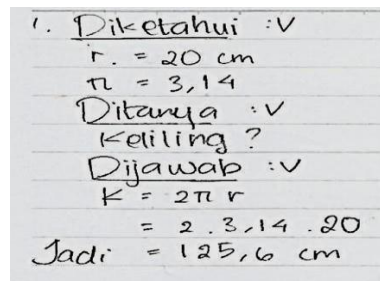 1. Diketahui :V
r. = 20 cm
π = 3,14
Ditanya :V
Keliling ?
Dijawab :V
K = 2π r
= 2 . 3,14 . 20
Jadi = 125,6 cm